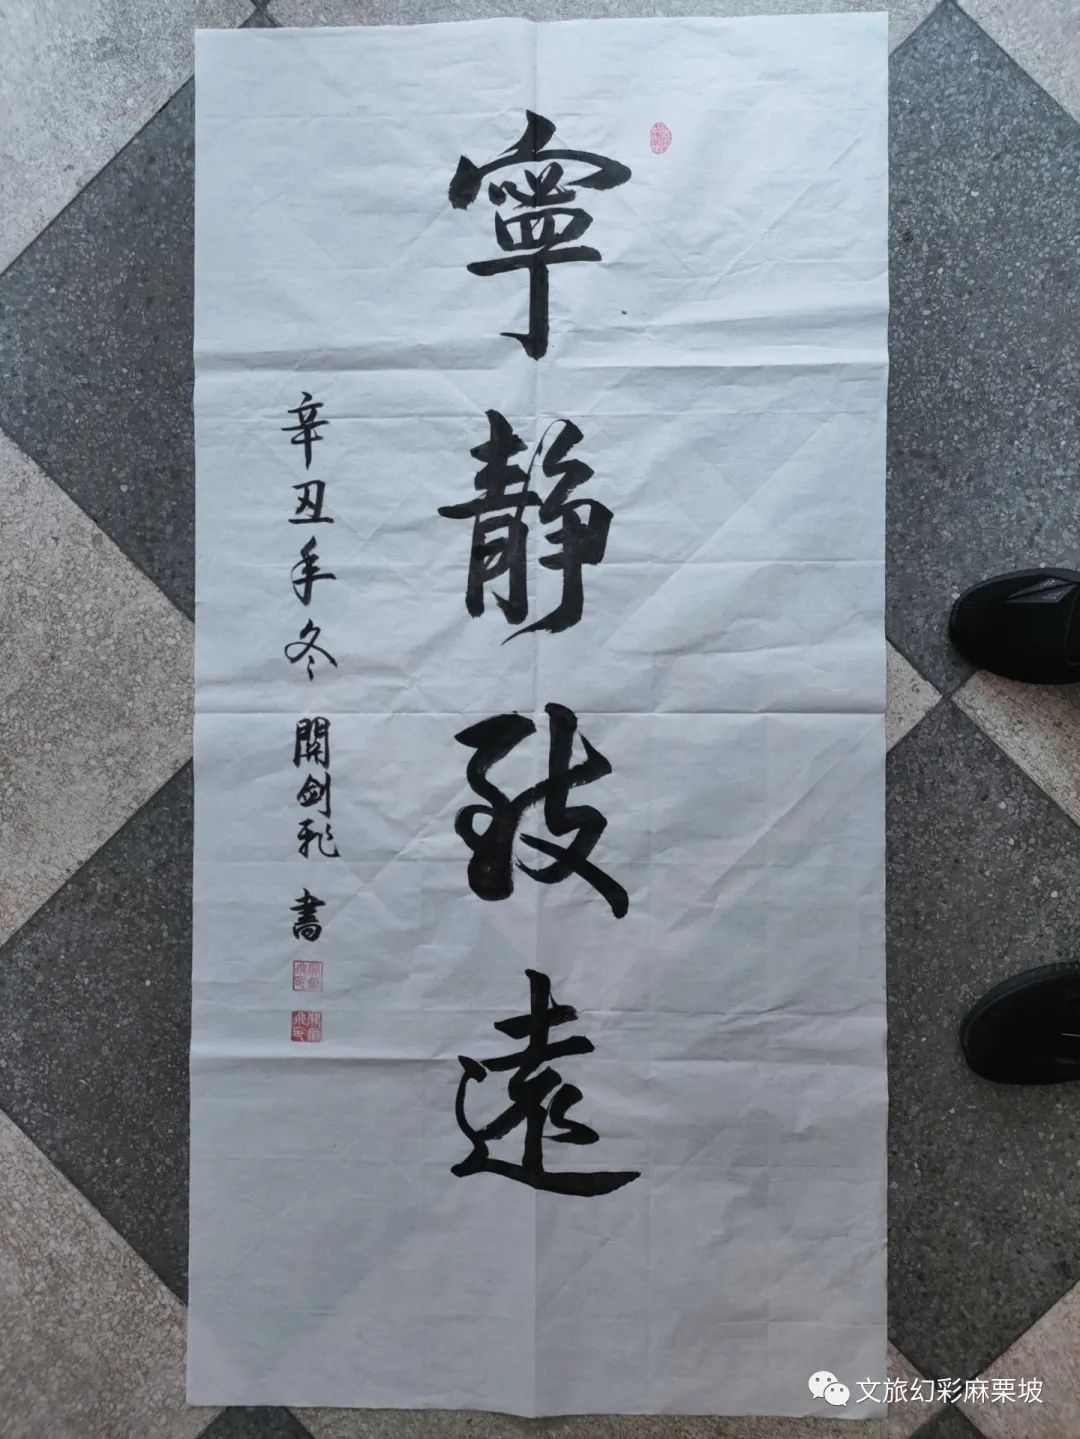 寧靜致遠
辛丑年冬 開劍飛 書
文旅幻彩麻栗坡